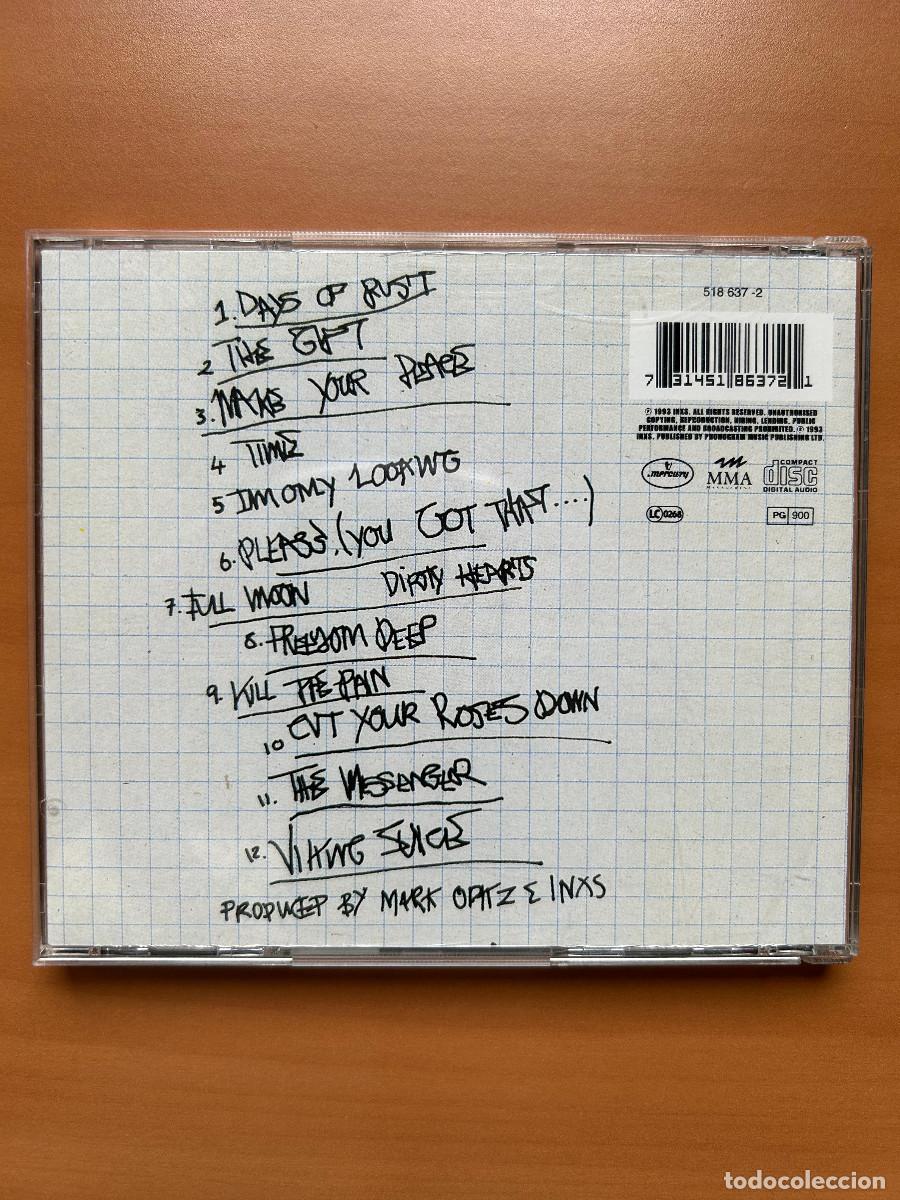 1. DAYS OF RUST
2 THE GIFT
3. MAKE YOUR PEACE
4 TIME
5 I'M ONLY LOOKING
6. PLEASE, (YOU GOT THAT....)
7. FULL MOON DIRTY HEARTS
8. FREEDOM DEEP
9. KILL THE PAIN
10 CUT YOUR ROSES DOWN
11. THE MESSENGER
12. VIKING JUICE
PRODUCED BY MARK OPITZ & INXS
518 637 -2
7 31451 86372 1
℗ 1993 INXS. ALL RIGHTS RESERVED. UNAUTHORISED
COPYING, REPRODUCTION, HIRING, LENDING, PUBLIC
PERFORMANCE AND BROADCASTING PROHIBITED. © 1993
INXS. PUBLISHED BY PHONOGRAM MUSIC PUBLISHING LTD.
mercury
MMA
COMPACT
disc
DIGITAL AUDIO
LC 0268
PG 900
todocoleccion